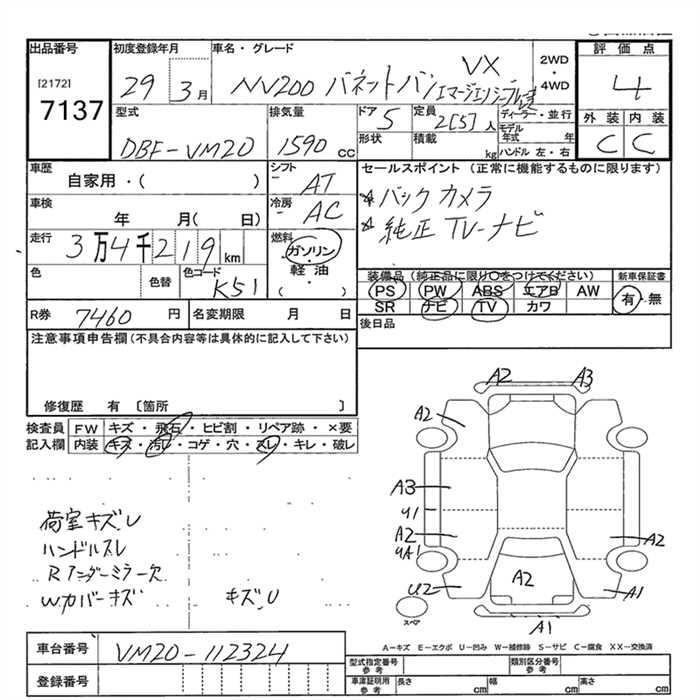 出品番号
初度登録年月
車名・グレード
2WD
・
4WD
評価点
[2172]
7137
29 3月
NV200 バネットバン VX
4
型式
DBF-VM20
排気量
1590 cc
ドア
5
定員
2[5]人
ディーラー・並行
モデル年式 年
ハンドル 左・右
外装 内装
C C
形状
積載
kg
車歴
自家用・( )
シフト
AT
セールスポイント (正常に機能するものに限ります)
* バックカメラ
* 純正 TV-ナビ
車検
年 月( 日)
冷房
AC
走行
3万4千219km
燃料
ガソリン
・
軽油
・
( )
色
色替
色コード
K51
装備品 (純正品に限り○をつけてください)
新車保証書
PS PW ABS エアB AW
SR ナビ TV カワ
有・無
R券 7460 円
名変期限 月 日
後日品
注意事項申告欄(不具合内容等は具体的に記入して下さい)
修復歴 有 [箇所 ]
検査員
記入欄
FW キズ・飛石・ヒビ割・リペア跡・×要
内装 キズ・汚れ・コゲ・穴・スレ・キレ・破レ
荷室キズU
ハンドルスレ
Rアンダーミラー欠
Wカバーキズ キズU
A2 A3
A2
A3
U1
A2
UA1
U2
A2
A2
A1
A1
スペア
A-キズ E-エクボ U-凹み W-補修跡 S-サビ C-腐食 XX-交換済
車台番号 VM20-112324
登録番号
型式指定番号
参考
類別区分番号
参考
車庫証明用
参考
長さ cm 幅 cm 高さ cm